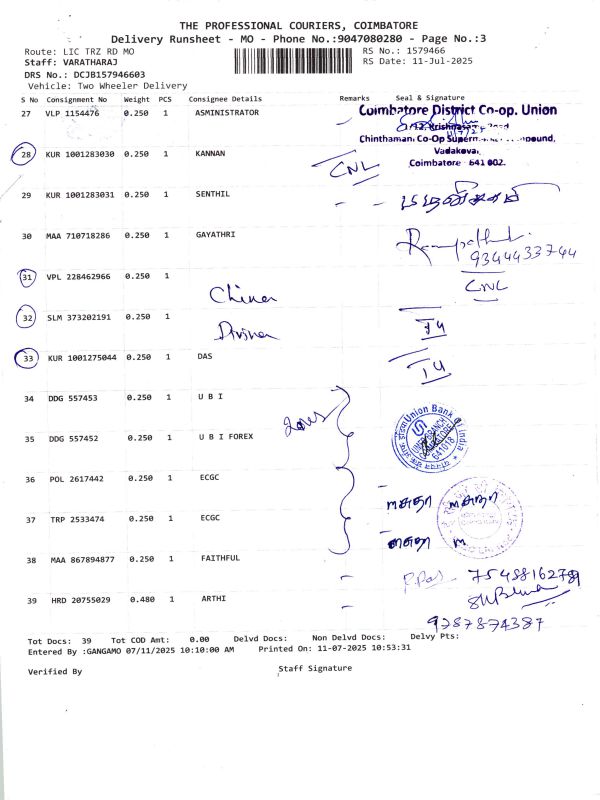 THE PROFESSIONAL COURIERS, COIMBATORE
Delivery Runsheet - MO - Phone No.:9047080280 - Page No.:3
Route: LIC TRZ RD MO RS No.: 1579466
Staff: VARATHARAJ RS Date: 11-Jul-2025
DRS No.: DCJB157946603
Vehicle: Two Wheeler Delivery
S No Consignment No Weight PCS Consignee Details Remarks Seal & Signature
27 VLP 1154476 0.250 1 ASMINISTRATOR Coimbatore District Co-op. Union
Chinthamani Co-Op
Coimbatore - 641 002.
28 KUR 1001283030 0.250 1 KANNAN CNL
29 KUR 1001283031 0.250 1 SENTHIL
30 MAA 710718286 0.250 1 GAYATHRI
9344433744
31 VPL 228462966 0.250 1 CNL
China
32 SLM 373202191 0.250 1
33 KUR 1001275044 0.250 1 DAS
34 DDG 557453 0.250 1 U B I
Union Bank of India
641018
35 DDG 557452 0.250 1 U B I FOREX
36 POL 2617442 0.250 1 ECGC
37 TRP 2533474 0.250 1 ECGC
38 MAA 867894877 0.250 1 FAITHFUL
39 HRD 20755029 0.480 1 ARTHI
9787874387
Tot Docs: 39 Tot COD Amt: 0.00 Delvd Docs: Non Delvd Docs: Delvy Pts:
Entered By :GANGAMO 07/11/2025 10:10:00 AM Printed On: 11-07-2025 10:53:31
Verified By Staff Signature